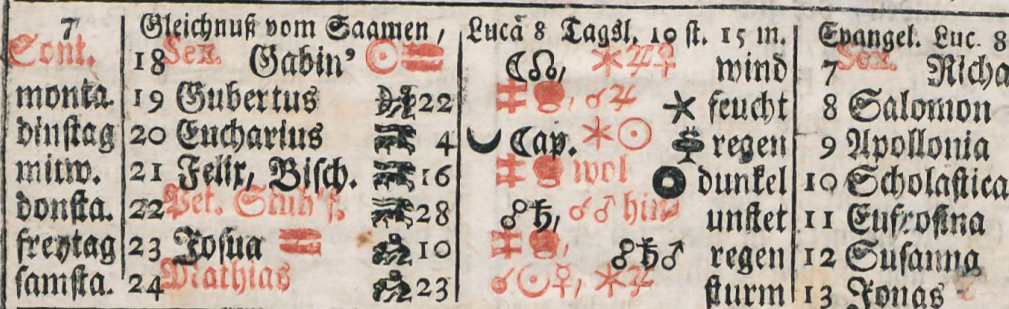 7 Gleichnuß vom Saamen, Lucä 8 Tagsl. 10 st. 15 m. Evangel. Luc. 8
Sont. 18 Sex. Gabin' ☉ ♒ ☾☊, ✶♃♀ wind 7 Sex. Richa
monta. 19 Gubertus 22 ☌♃ feucht 8 Salomon
dinstag 20 Eucharius 4 ☾ap. ✶☉ regen 9 Apollonia
mitw. 21 Felix, Bisch. 16 wol dunkel 10 Scholastica
donsta. 22 Pet. Stuhlf. 28 ☍♄, ☌♂ hin unstet 11 Eufrosina
freytag 23 Josua 10 ☍♄♂ regen 12 Susanna
samsta. 24 Mathias 23 ☌☉☿, ✶♃ sturm 13 Jonas